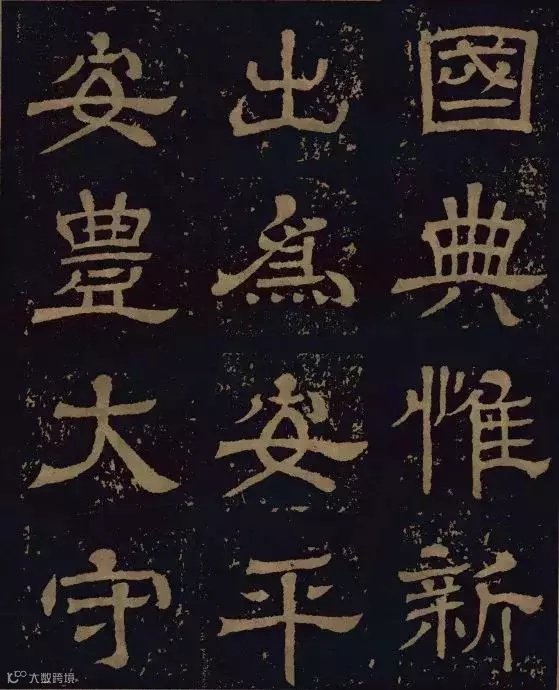 國典惟新
出為安平
安豊大守
大数跨境